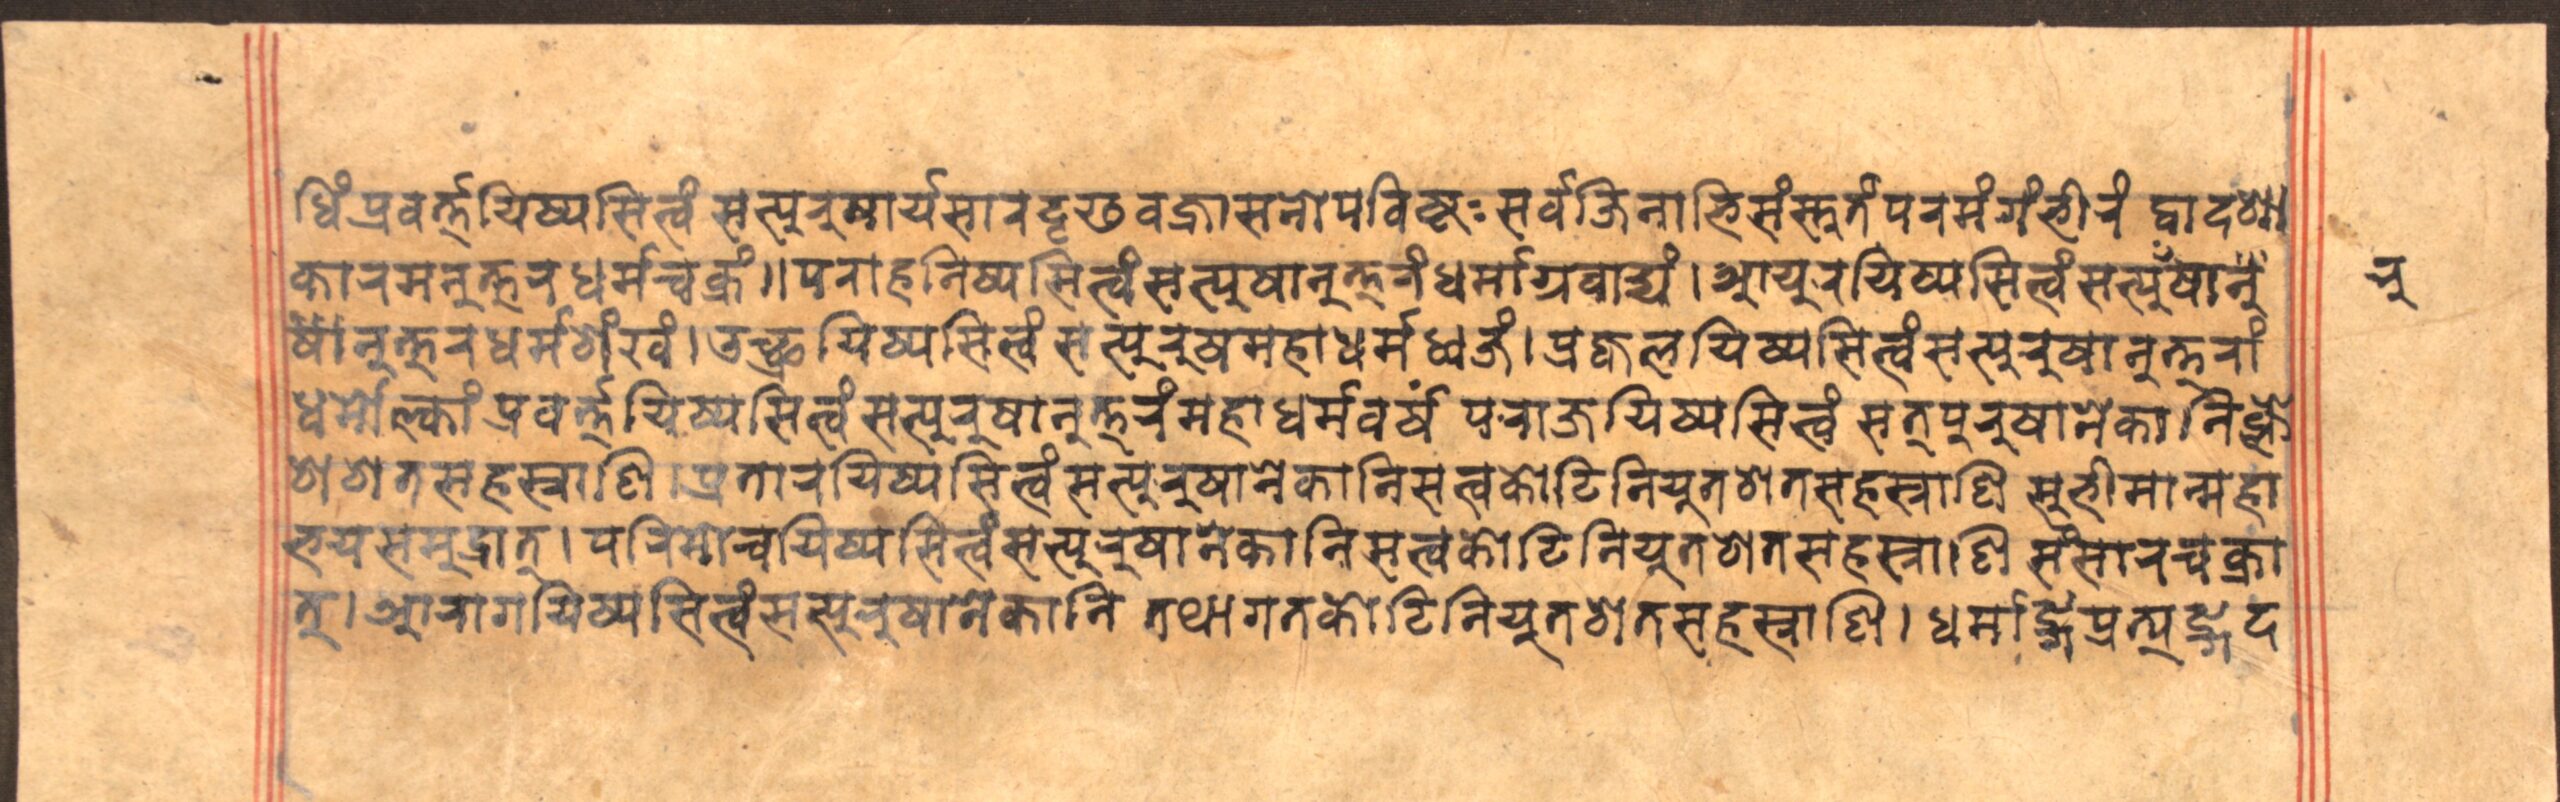 धिं प्रवर्त्तयिष्यसि त्वं सत्पुरुषार्यसारदृढवज्रासनोपविष्टः सर्वजिनाभिसंस्तुतं परमं गंभीरं द्वादशा
कारमनुत्तरधर्मचक्रं ॥ पराहनिष्यसि त्वं सत्पुषानुत्तरं धर्माग्रवाद्यं । आपुरयिष्यसि त्वं सत्पुषानु रु
षानुत्तरधर्मशंखं । उच्छ्रयिष्यसि त्वं सत्पुरुषमहाधर्मध्वजं । प्रज्वलयिष्यसि त्वं सत्पुरुषानुत्तरां
धर्मोल्कां प्रवर्त्तयिष्यसि त्वं सत्पुरुषानुत्तरं महाधर्मवर्षं पराजयिष्यसि त्वं सत्पुरुषानेकानि क्ले
शशतसहस्राणि । प्रतारयिष्यसि त्वं सत्पुरुषानेकानि सत्वकोटिनियुतशतसहस्राणि सुभीमान्महा
भयसमुद्रात् । परिमोचयिष्यसि त्वं सत्पुरुषानेकानि सत्वकोटिनियुतशतसहस्राणि संसारचक्रा
त् । आरागयिष्यसि त्वं सत्पुरुषानेकानि तथागतकोटिनियुतशतसहस्राणि । धर्माङ्गप्रत्यङ्गद